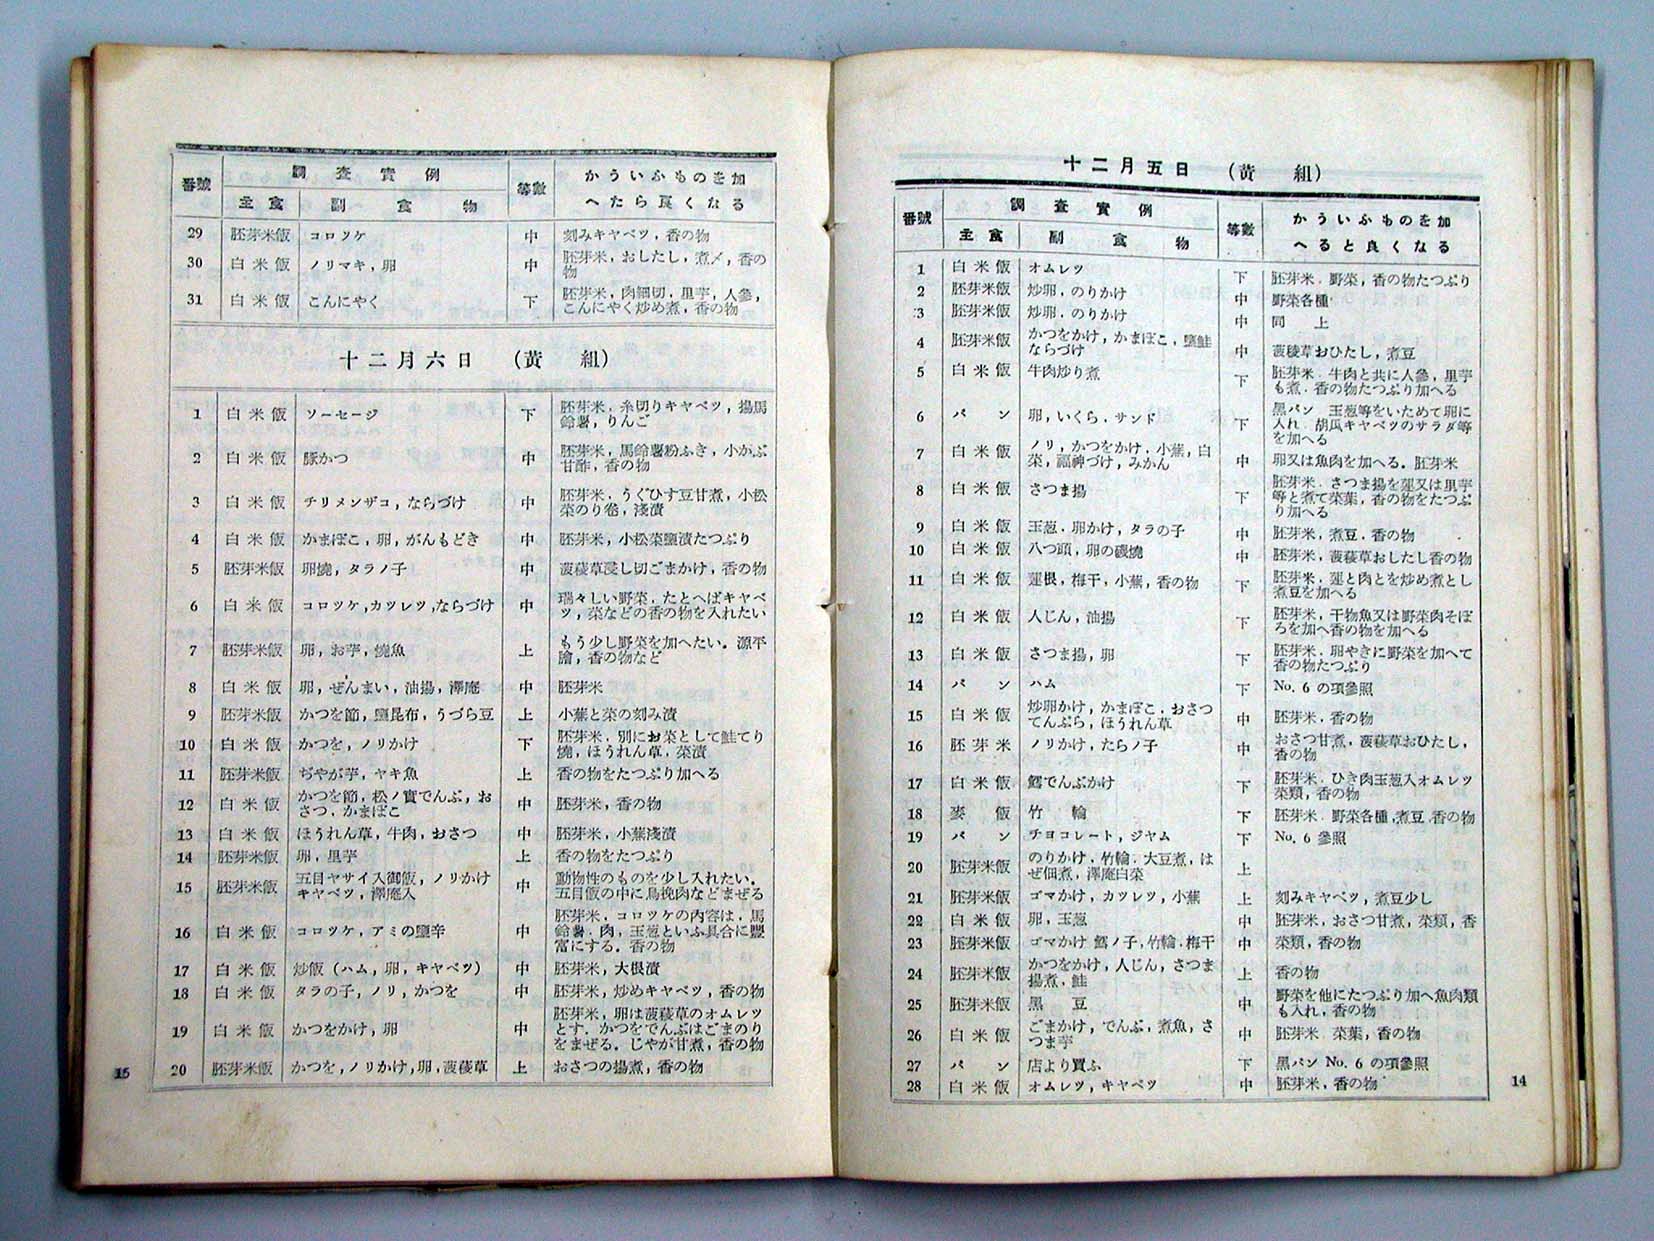 十二月五日 (黃 組)
番號 調査實例 等數 かういふものを加
主食 副食物 へると良くなる
1 白米飯 オムレツ 下 胚芽米．野菜，香の物たつぷり
2 胚芽米飯 炒卵，のりかけ 中 野菜各種
3 胚芽米飯 炒卵．のりかけ 中 同 上
4 胚芽米飯 かつをかけ，かまぼこ，鹽鮭
ならづけ 中 菠薐草おひたし，煮豆
5 白米飯 牛肉炒り煮 下 胚芽米．牛肉と共に人參，里芋
も煮．香の物たつぷり加へる
6 パン 卵，いくら．サンド 下 黑パン 玉葱等をいためて卵に
入れ．胡瓜キャベツのサラダ等
を加へる
7 白米飯 ノリ，かつをかけ．小蕪，白
菜，福神づけ，みかん 中 卵又は魚肉を加へる．胚芽米
8 白米飯 さつま揚 下 胚芽米．さつま揚を蓮又は里芋
等と煮て菜葉，香の物をたつぷ
り加へる
9 白米飯 玉葱．卵かけ，タラの子 中 胚芽米，煮豆．香の物
10 白米飯 八つ頭，卵の磯燒 中 胚芽米，菠薐草おしたし香の物
11 白米飯 蓮根，梅干，小蕪，香の物 下 胚芽米．蓮と肉とを炒め煮とし
煮豆を加へる
12 白米飯 人じん，油揚 下 胚芽米，干物魚又は野菜肉そぼ
ろを加へ香の物を加へる
13 白米飯 さつま揚，卵 下 胚芽米．卵やきに野菜を加へて
香の物たつぷり
14 パン ハム 下 No. 6 の項參照
15 白米飯 炒卵かけ，かまぼこ．おさつ
てんぷら，ほうれん草 中 胚芽米．香の物
16 胚芽米 ノリかけ，たらノ子 中 おさつ甘煮，菠薐草おひたし，
香の物
17 白米飯 鱈でんぶかけ 下 胚芽米．ひき肉玉葱入オムレツ
菜類，香の物
18 麥飯 竹 輪 下 胚芽米．野菜各種，煮豆．香の物
19 パン チヨコレート，ジヤム 下 No. 6 參照
20 胚芽米飯 のりかけ．竹輪．大豆煮，は
ぜ佃煮，澤庵白菜 上
21 胚芽米飯 ゴマかけ，カツレツ，小蕪 上 刻みキャベツ，煮豆少し
22 白米飯 卵，玉葱 中 胚芽米，おさつ甘煮，菜類，香
23 胚芽米飯 ゴマかけ 鱈ノ子，竹輪．梅干 中 菜類，香の物
24 胚芽米飯 かつをかけ，人じん，さつま
揚煮，鮭 上 香の物
25 胚芽米飯 黑 豆 中 野菜を他にたつぷり加へ魚肉類
も入れ，香の物
26 白米飯 ごまかけ，でんぶ，煮魚，さ
つま芋 中 胚芽米 菜葉，香の物
27 パン 店より買ふ 下 黑パン No. 6 の項參照
28 白米飯 オムレツ，キャベツ 中 胚芽米，香の物
14
番號 調査實例 等數 かういふものを加
主食 副食物 へたら良くなる
29 胚芽米飯 コロツケ 中 刻みキヤベツ，香の物
30 白米飯 ノリマキ，卵 中 胚芽米，おしたし，煮〆，香の
物
31 白米飯 こんにやく 下 胚芽米，肉細切．里芋，人參，
こんにやく炒め煮，香の物
十二月六日 (黃 組)
1 白米飯 ソーセージ 下 胚芽米．糸切りキャベツ，揚馬
鈴薯，りんご
2 白米飯 豚かつ 中 胚芽米，馬鈴薯粉ふき，小かぶ
甘酢，香の物
3 白米飯 チリメンザコ，ならづけ 中 胚芽米．うぐひす豆甘煮，小松
菜のり卷，淺漬
4 白米飯 かまぼこ，卵，がんもどき 中 胚芽米，小松菜鹽漬たつぷり
5 胚芽米飯 卵燒，タラノ子 中 菠薐草浸し切ごまかけ，香の物
6 白米飯 コロツケ，カツレツ，ならづけ 中 瑞々しい野菜．たとへばキャベ
ツ，菜などの香の物を入れたい
7 胚芽米飯 卵，お芋，燒魚 上 もう少し野菜を加へたい．源平
膾，香の物など
8 白米飯 卵，ぜんまい，油揚，澤庵 中 胚芽米
9 胚芽米飯 かつを節，鹽昆布，うづら豆 上 小蕪と菜の刻み漬
10 白米飯 かつを，ノリかけ 下 胚芽米．別にお菜として鮭てり
燒，ほうれん草．菜漬
11 胚芽米飯 ぢやが芋，ヤキ魚 上 香の物をたつぷり加へる
12 白米飯 かつを節，松ノ實でんぶ，お
さつ．かまぼこ 中 胚芽米，香の物
13 白米飯 ほうれん草，牛肉，おさつ 中 胚芽米，小蕪淺漬
14 胚芽米飯 卵，里芋 上 香の物をたつぷり
15 胚芽米飯 五目ヤサイ入御飯，ノリかけ
キャベツ，澤庵入 中 動物性のものを少し入れたい．
五目飯の中に鳥挽肉などまぜる
16 白米飯 コロツケ，アミの鹽辛 中 胚芽米．コロツケの内容は．馬
鈴薯．肉，玉葱といふ具合に豐
富にする．香の物
17 白米飯 炒飯 (ハム，卵，キャベツ) 中 胚芽米，大根漬
18 白米飯 タラの子，ノリ，かつを 中 胚芽米，炒めキャベツ，香の物
19 白米飯 かつをかけ，卵 中 胚芽米，卵は菠薐草のオムレツ
とす．かつをでんぶはごまのり
をまぜる．じやが甘煮，香の物
20 胚芽米飯 かつを，ノリかけ，卵，菠薐草 上 おさつの揚煮，香の物
15